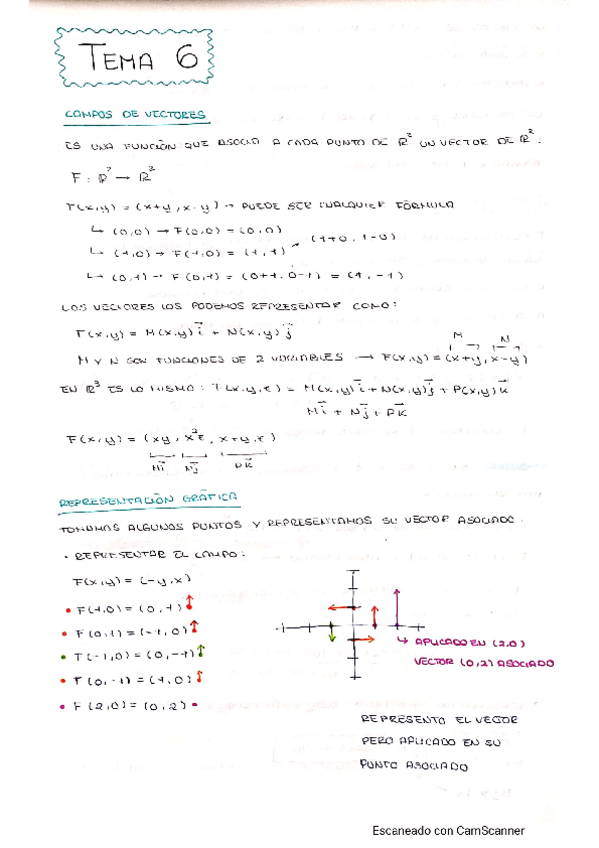 TEMA 6
CAMPOS DE VECTORES
ES UNA FUNCIÓN QUE ASOCIA A CADA PUNTO DE ℝ² UN VECTOR DE ℝ².
F: ℝ² → ℝ²
F(x,y) = (x+y, x-y) → PUEDE SER CUALQUIER FÓRMULA
↳ (0,0) → F(0,0) = (0,0)
↳ (1,0) → F(1,0) = (1,1) → (1+0, 1-0)
↳ (0,1) → F(0,1) = (0+1, 0-1) = (1,-1)
LOS VECTORES LOS PODEMOS REPRESENTAR COMO:
F(x,y) = M(x,y) i⃗ + N(x,y) j⃗
M N
M Y N SON FUNCIONES DE 2 VARIABLES → F(x,y) = (x+y, x-y)
EN ℝ³ ES LO MISMO: F(x,y,z) = M(x,y) i⃗ + N(x,y) j⃗ + P(x,y) k⃗
M i⃗ + N j⃗ + P k⃗
F(x,y) = (xy, x²z, x+y.z)
M i⃗ N j⃗ P k⃗
REPRESENTACIÓN GRÁFICA
TOMAMOS ALGUNOS PUNTOS Y REPRESENTAMOS SU VECTOR ASOCIADO.
• REPRESENTAR EL CAMPO:
F(x,y) = (-y,x)
• F(1,0) = (0,1)
• F(0,1) = (-1,0)
• F(-1,0) = (0,-1)
• F(0,-1) = (1,0)
• F(2,0) = (0,2) •
↳ APLICADO EN (2,0)
VECTOR (0,2) ASOCIADO
REPRESENTO EL VECTOR
PERO APLICADO EN SU
PUNTO ASOCIADO
Escaneado con CamScanner